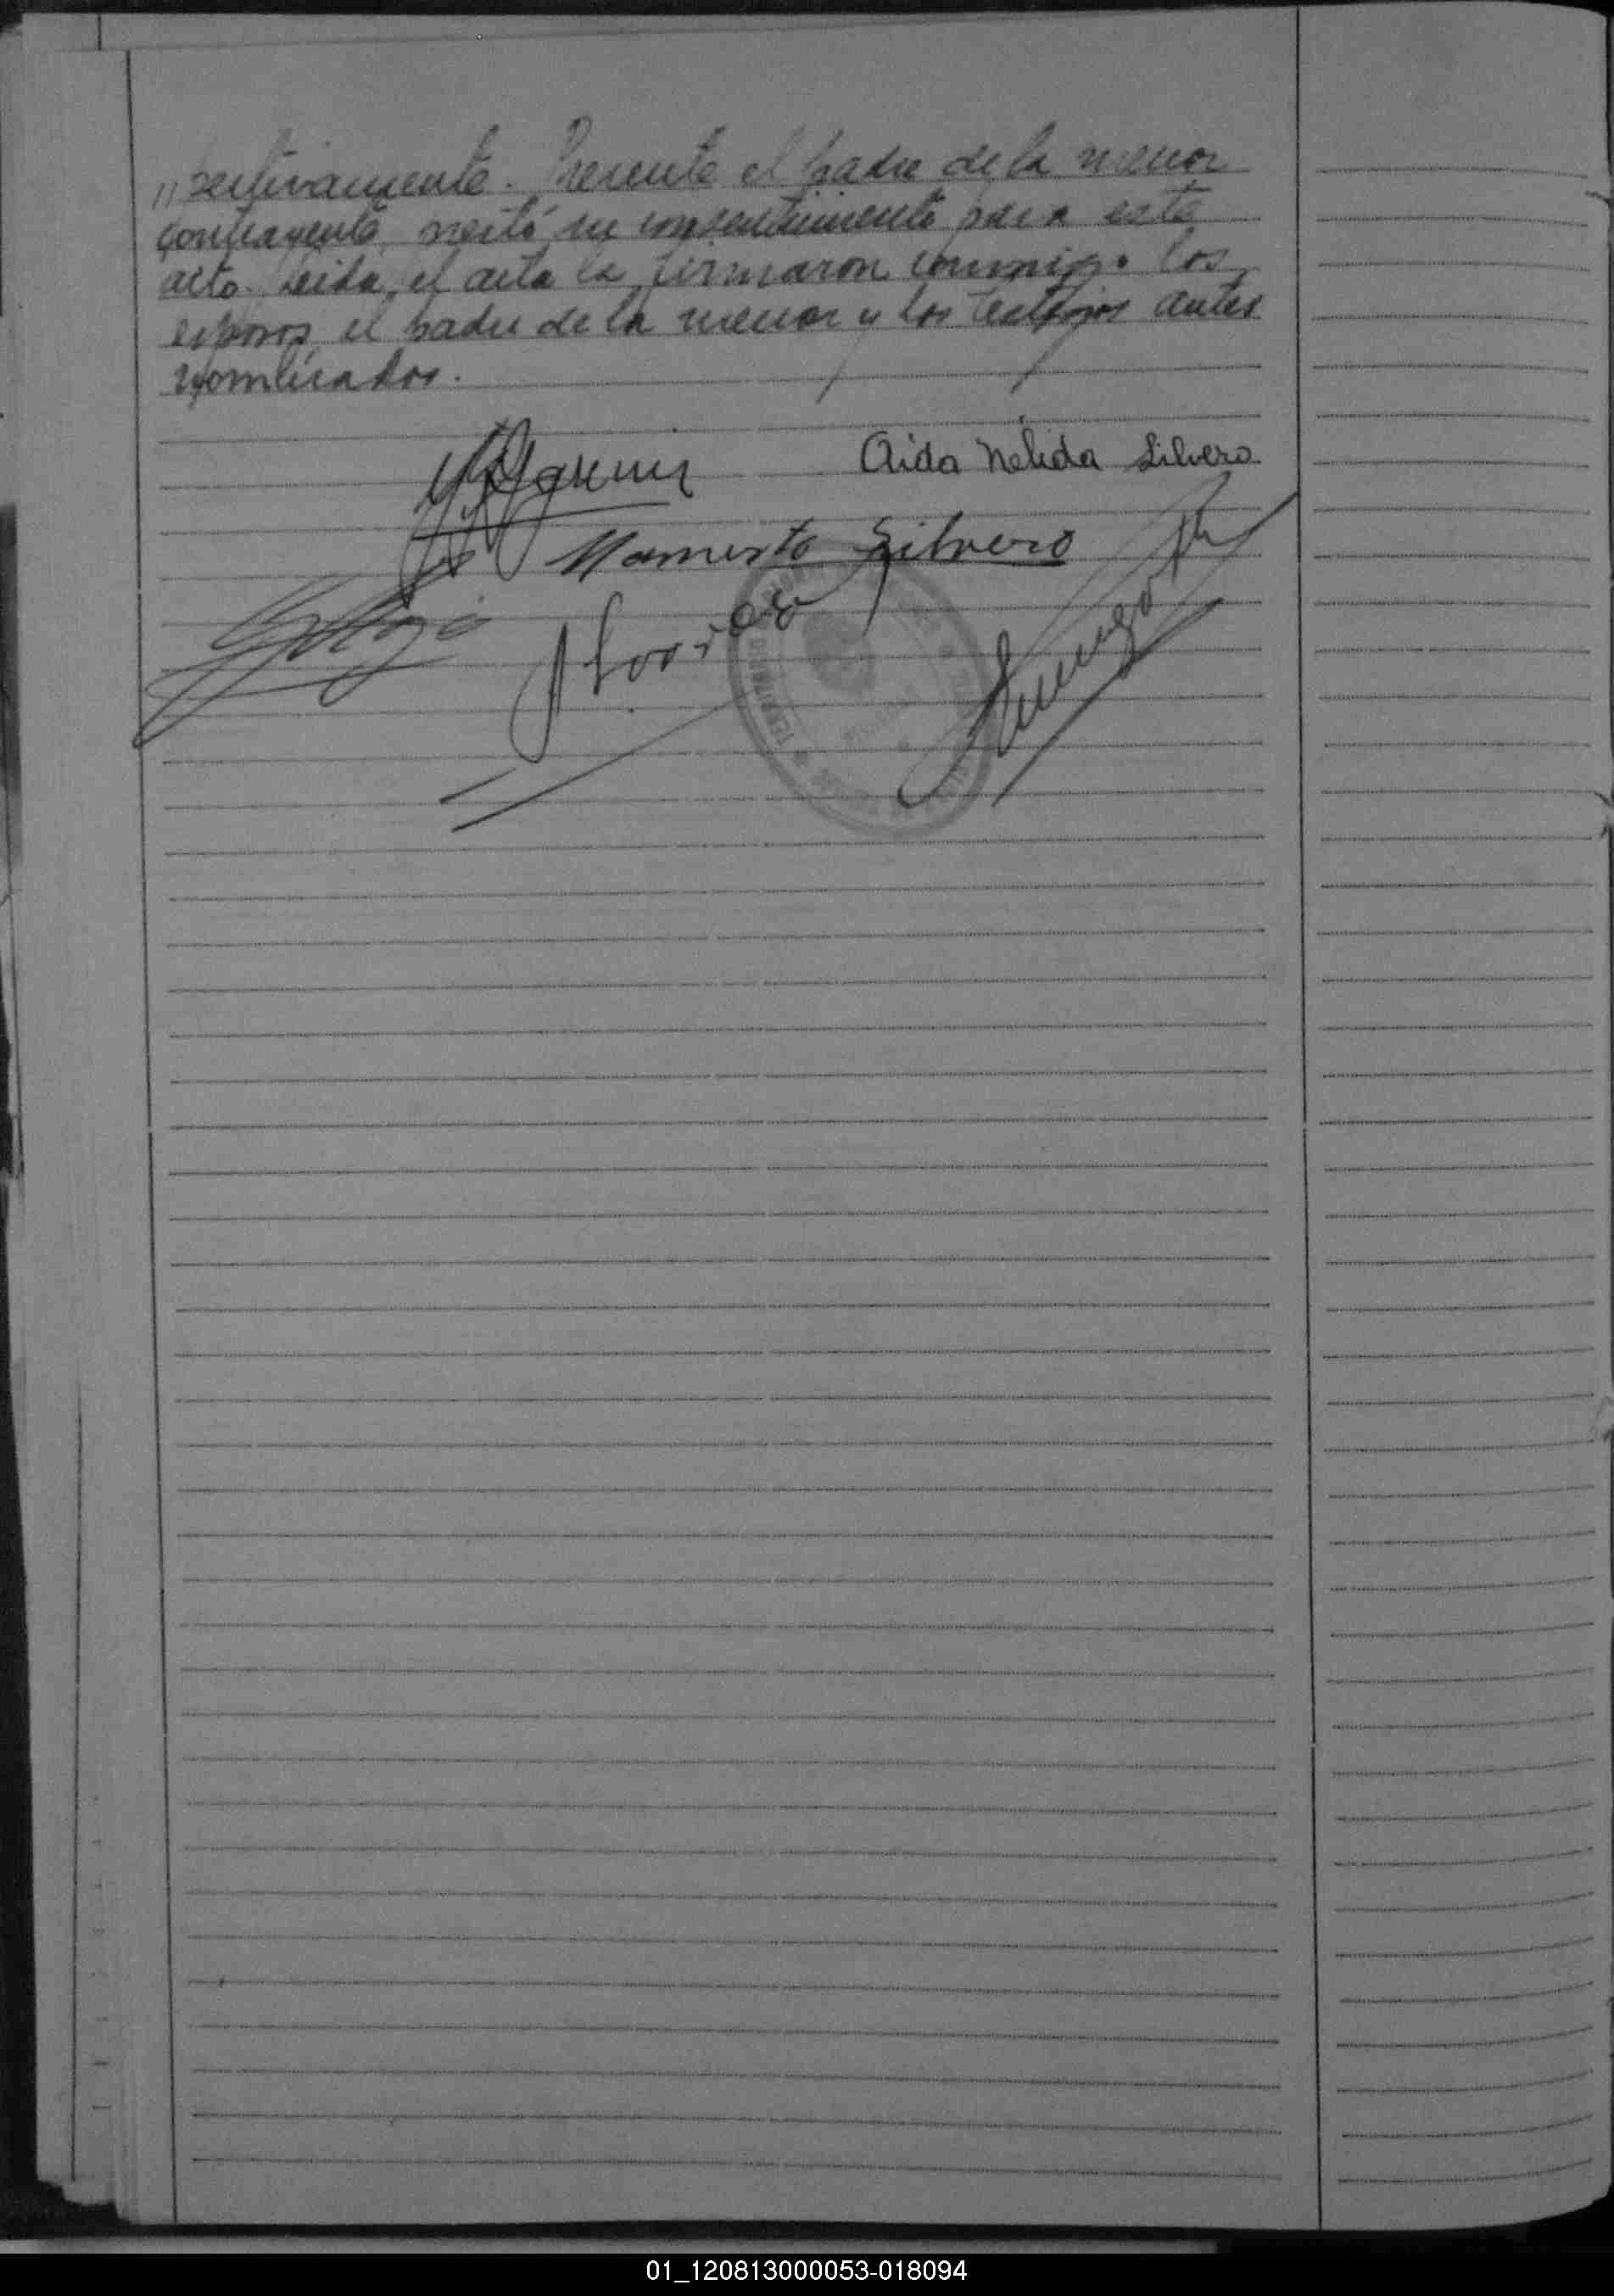 "pectivamente. Presente el padre de la menor
contrayente, prestó su consentimiento para este
acto. Leida el acta la firmaron conmigo los
esposos, el padre de la menor y los testigos antes
nombrados.
Aida Nélida Silvero
Mamerto Silvero
01_120813000053-018094